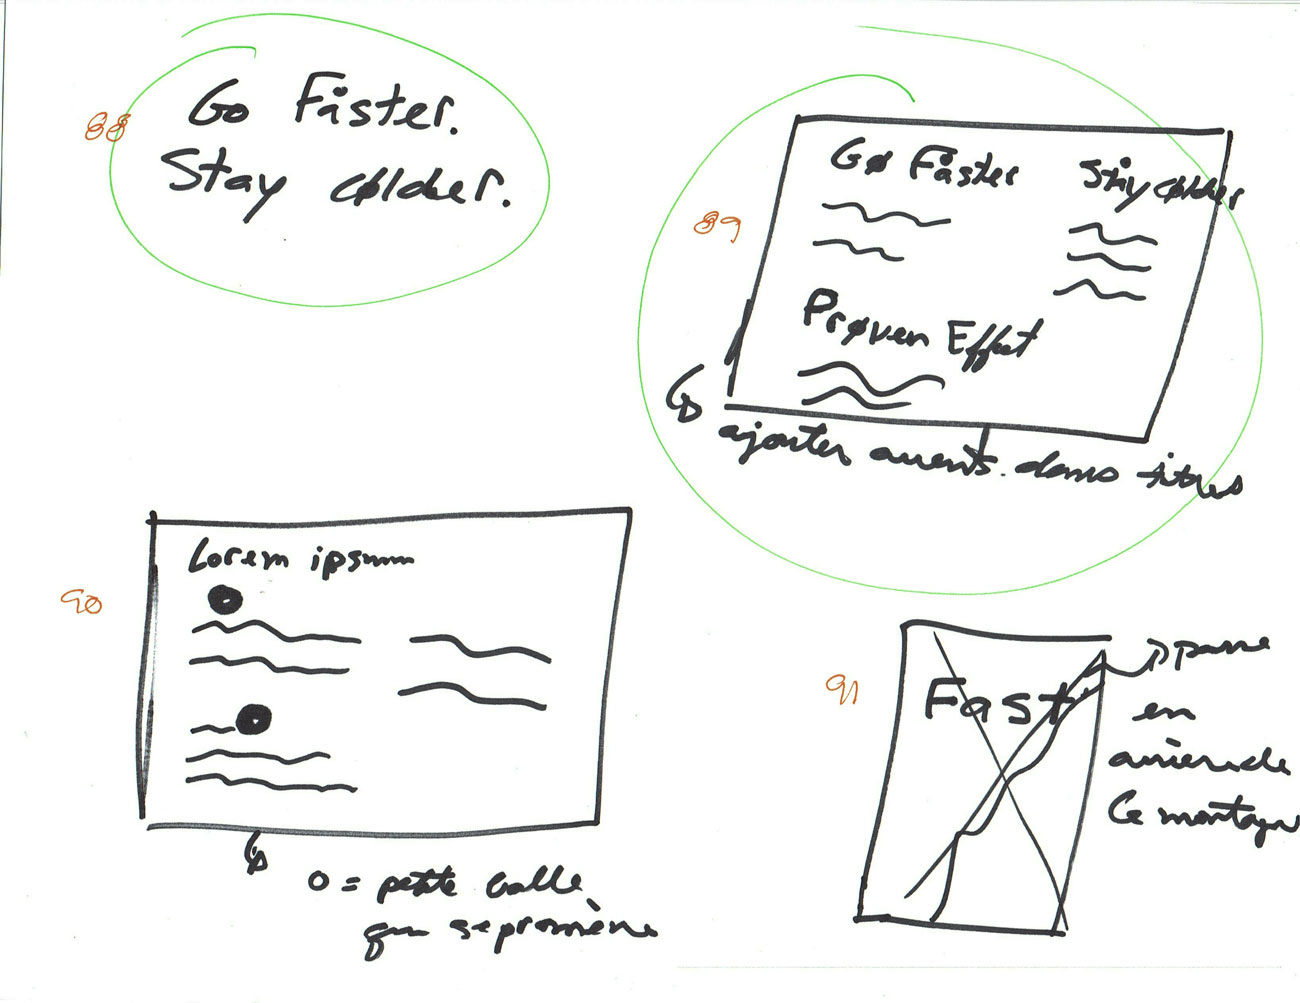 88
Go Fåster.
Stay cølder.
89
Gø Fåster
Ståy cølder
Prøven Effect
ajouter accents dans titres
90
Lorem ipsum
o = petite balle
qui se promène
91
Fast
passe
en
arrière de
la montagne